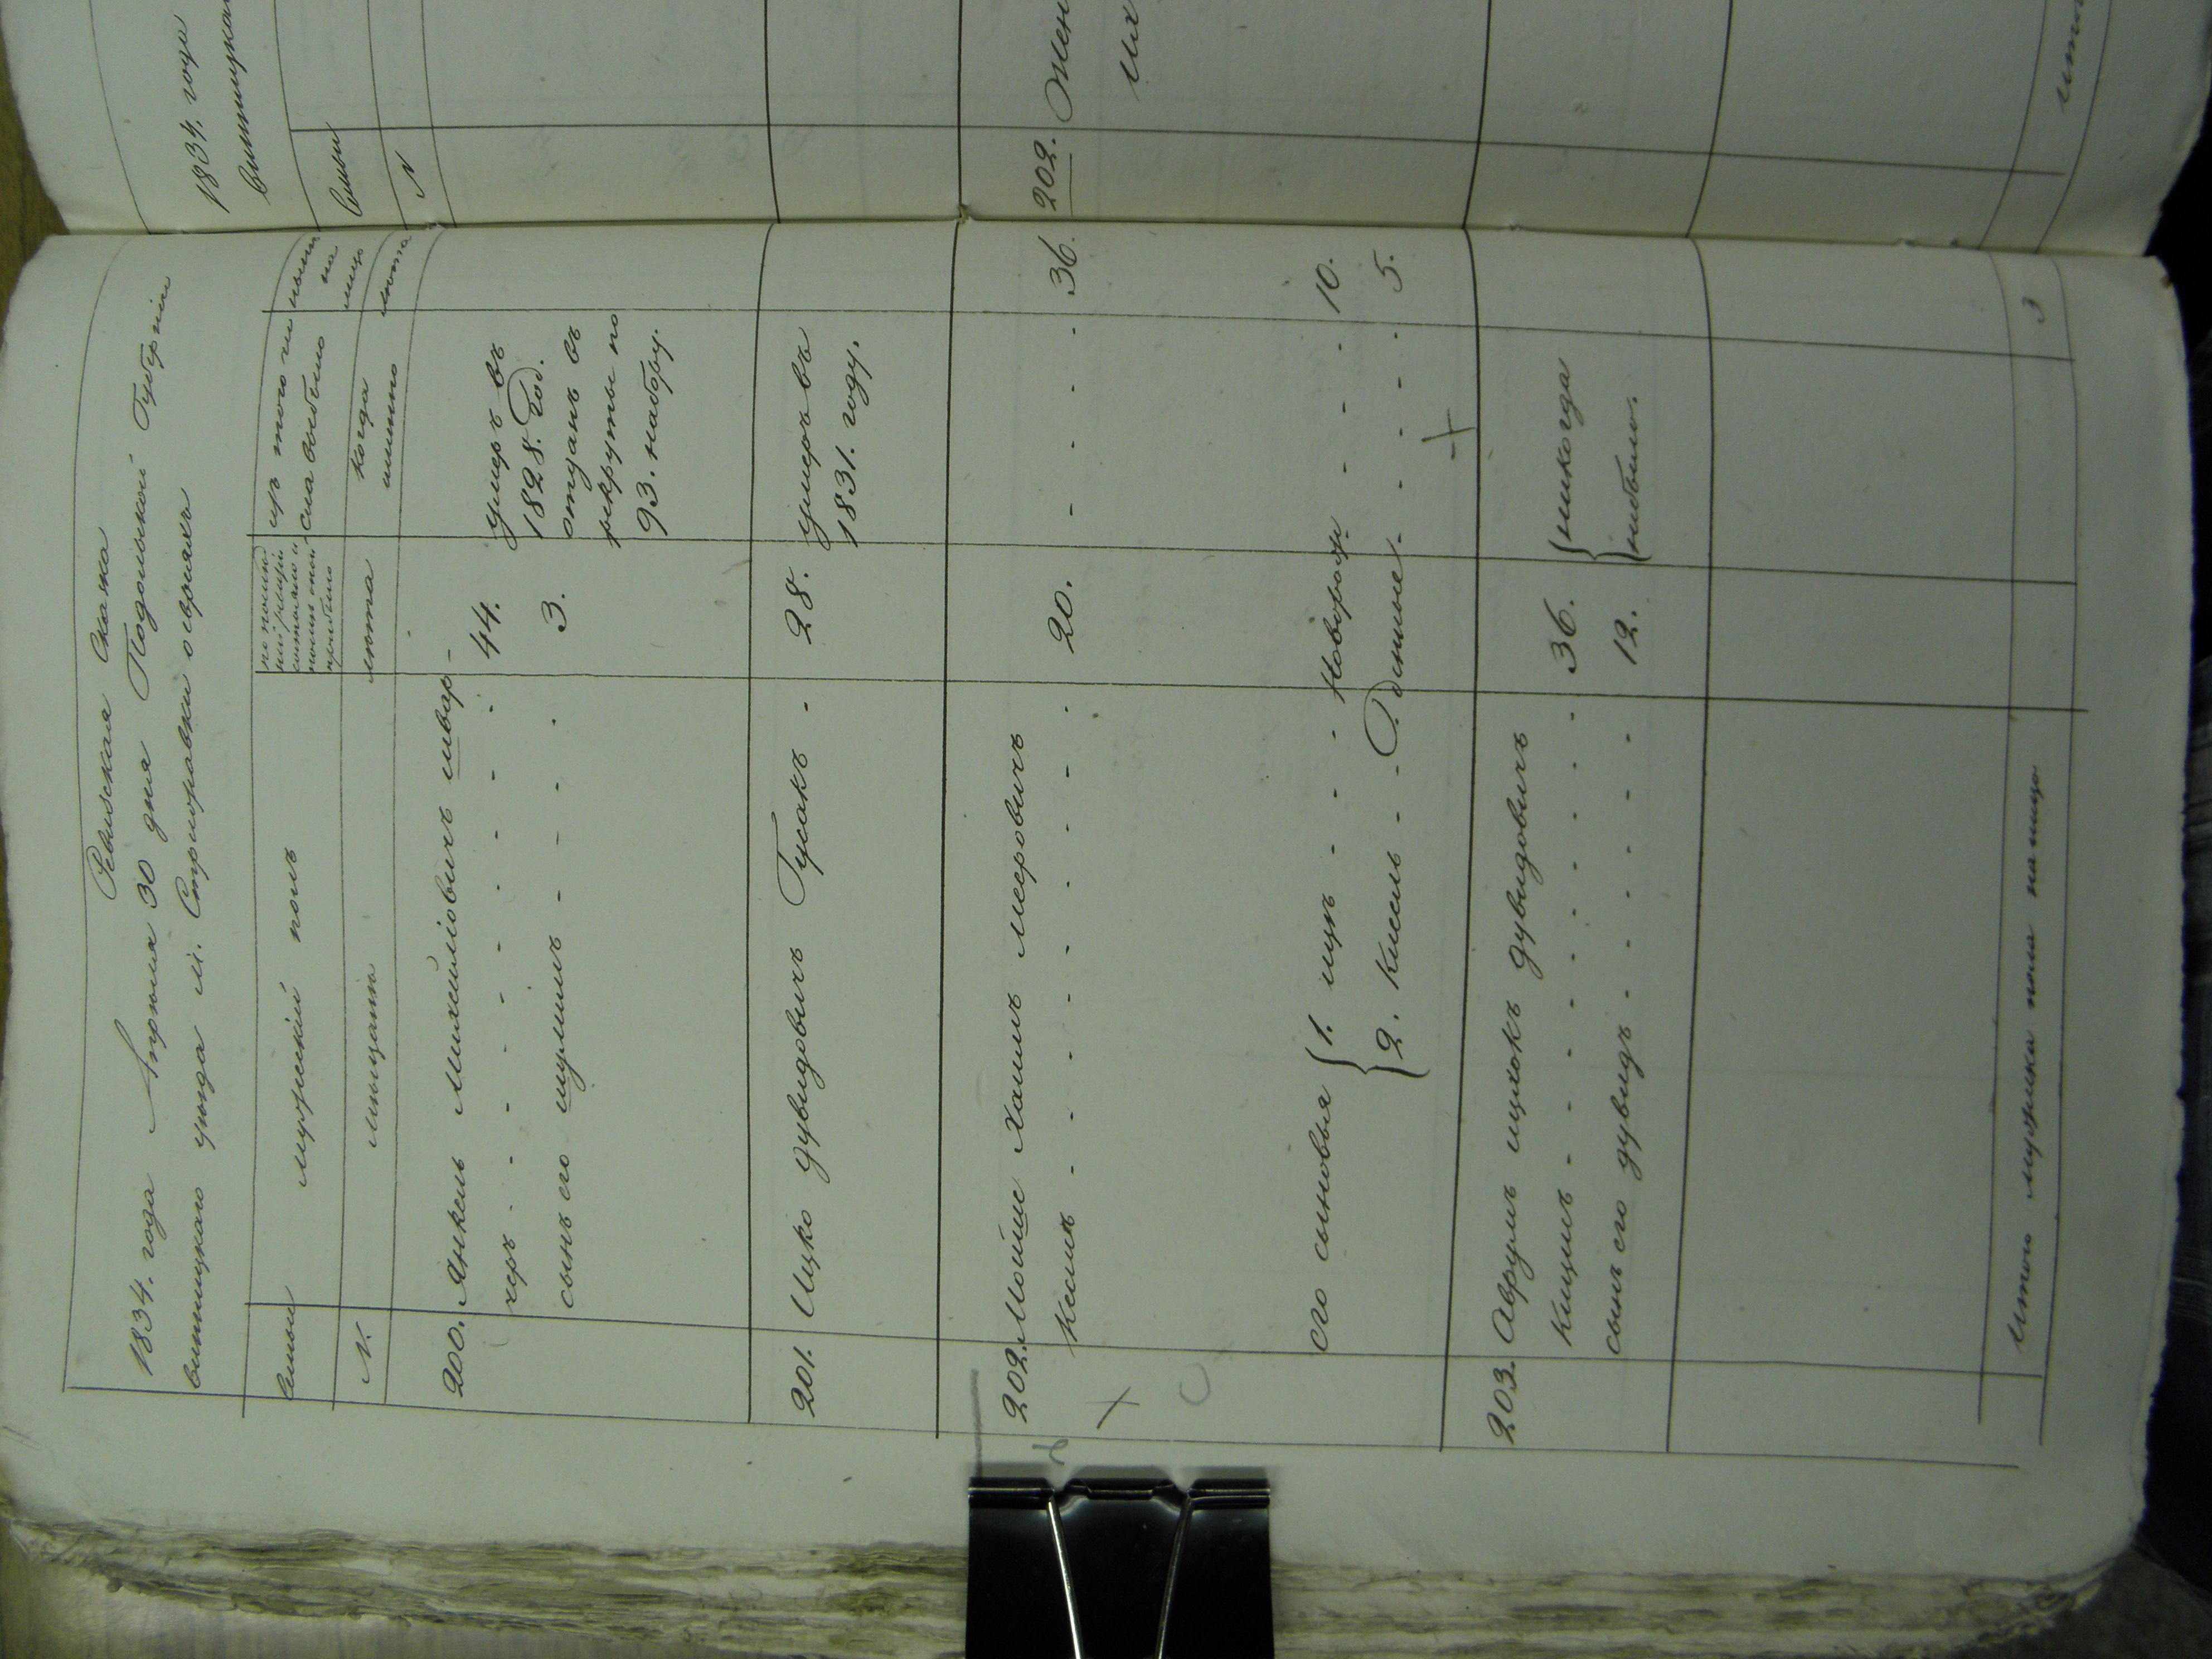 Ревизская Сказка
1834. года Апреля 30 дня Подольской Губерніи
винницкого уезда м. Стрижавки о евреяхъ
Семьи
мужескій полъ
по последней ревизіи состояло и после оной прибыло
изъ того числа выбыло
ныне на лицо
№.
мещане
лета
когда именно
лета
200. Янкель Михелiовичъ швар-
херъ - - - - - - - - 44. умеръ въ
1828. Год.
сынъ его шулимъ - - - - 3. отданъ въ
рекруты по
93. набору.
201. Ицко дувидовичъ Гусакъ - 28. умеръ въ
1831. году.
202. Мойше Хаимъ мееровичъ
Кесик - - - - - - - - 20. - - - - 36.
его сыновья 1. ицъ - - - Новорож - - - - 10.
2. Кисель - - Денные - - - - - 5.
203. Аврумъ ицхокъ дувидовичъ
Кицисъ - - - - - - - 36. никогда
сынъ его дувидъ - - - - - 12. небыло.
Итого мужеска пола налицо 3
1834. года
Винницкаго
Семьи
№
202. Жен
их
итого